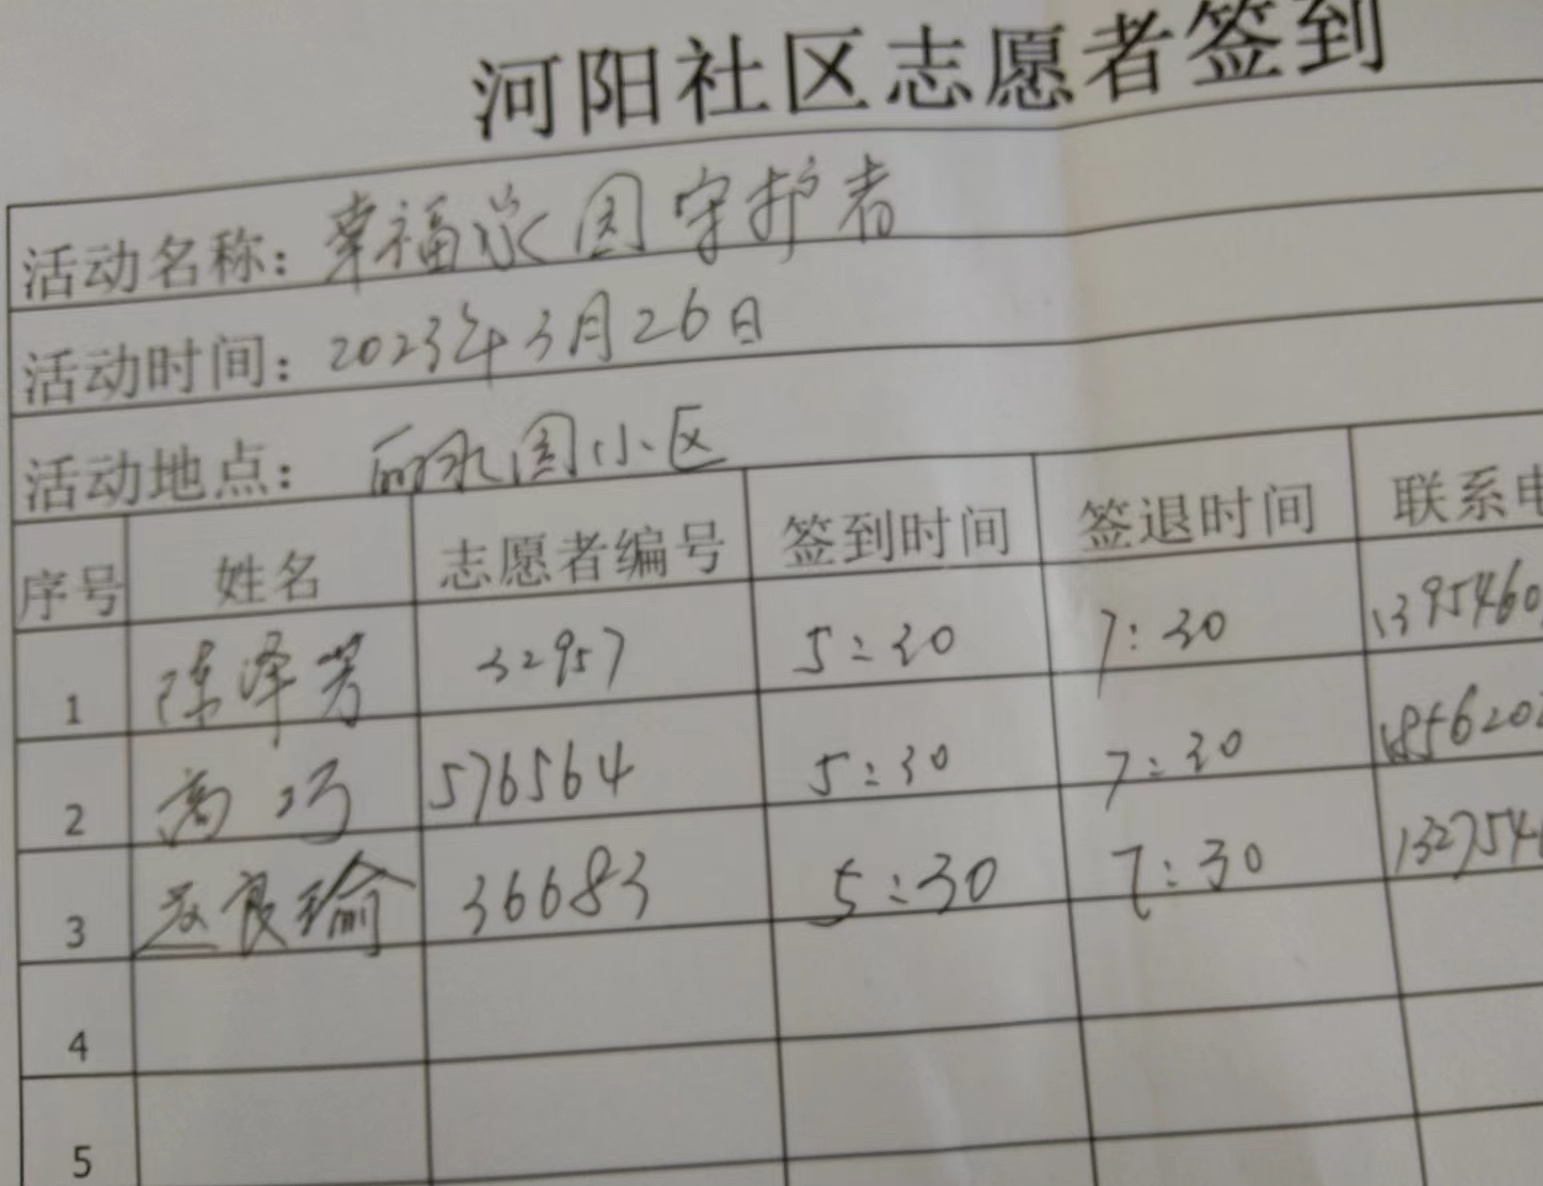 河阳社区志愿者签到
活动名称：幸福家园守护者
活动时间：2023年3月26日
活动地点：丽水园小区
序号 姓名 志愿者编号 签到时间 签退时间 联系电
1 陈泽芳 32957 5:30 7:30 1395460
2 高巧 576564 5:30 7:30 1856202
3 赵良瑜 36683 5:30 7:30 132754
4
5